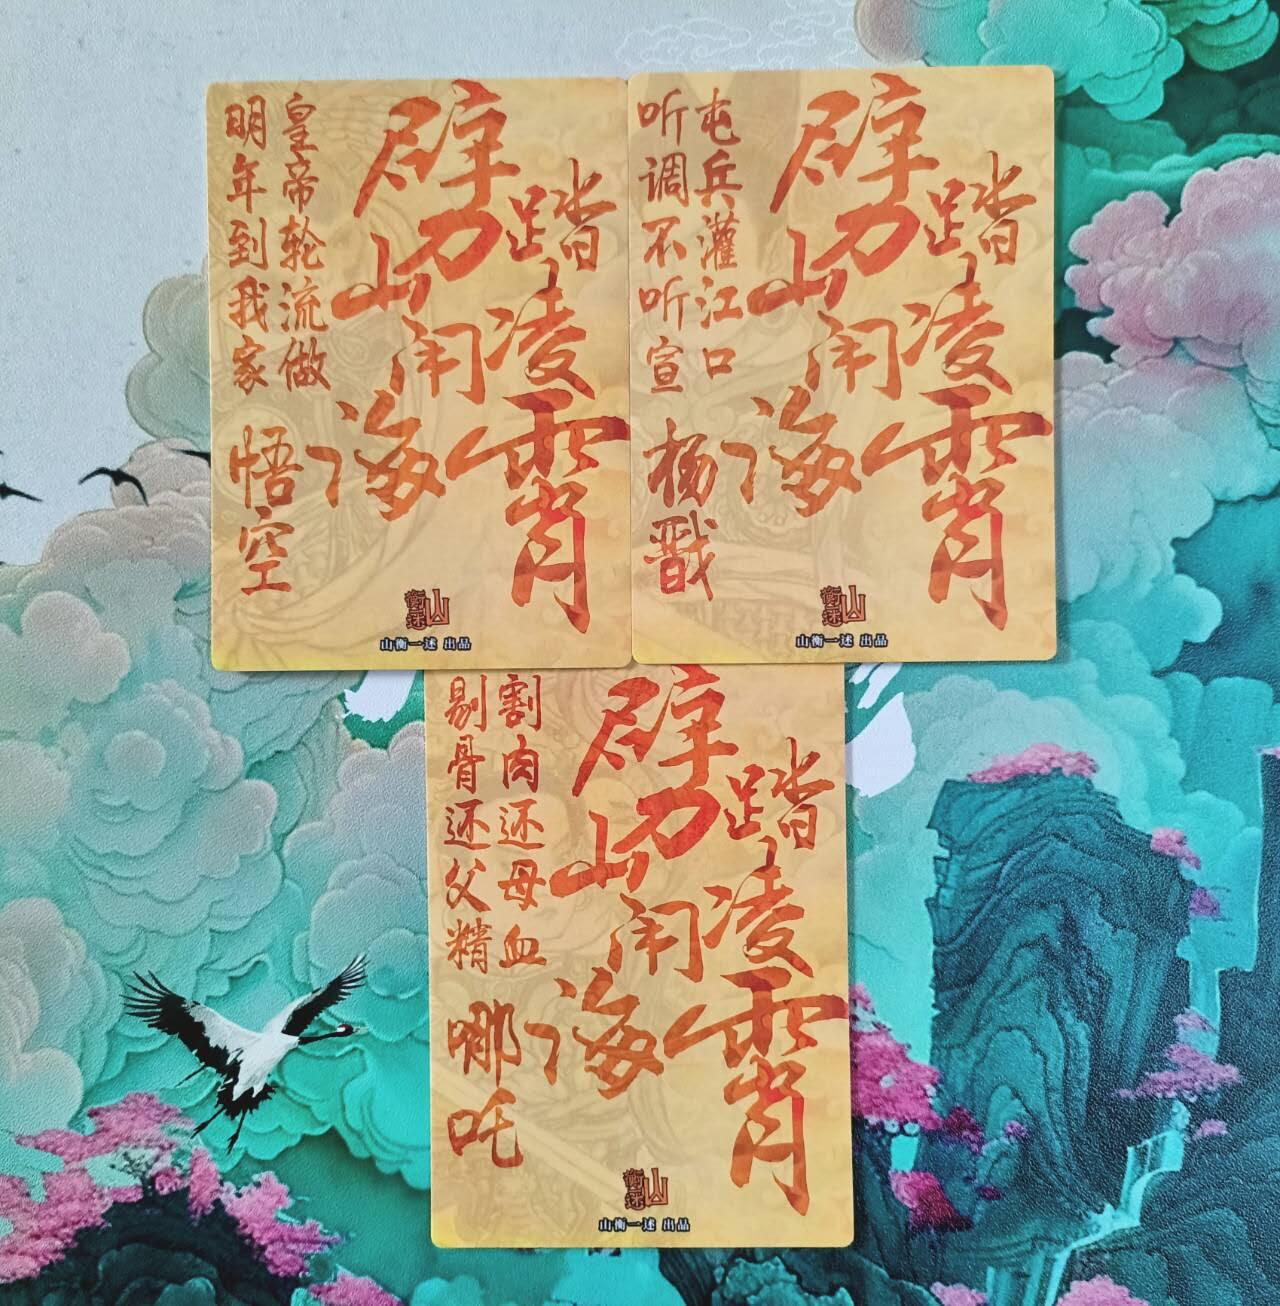 劈山闹海
踏凌霄
皇帝轮流做
明年到我家
悟空
山衡述
山衡一述 出品
劈山闹海
踏凌霄
屯兵灌江口
听调不听宣
杨戬
山衡述
山衡一述 出品
劈山闹海
踏凌霄
割肉还母血
剔骨还父精
哪吒
山衡述
山衡一述 出品